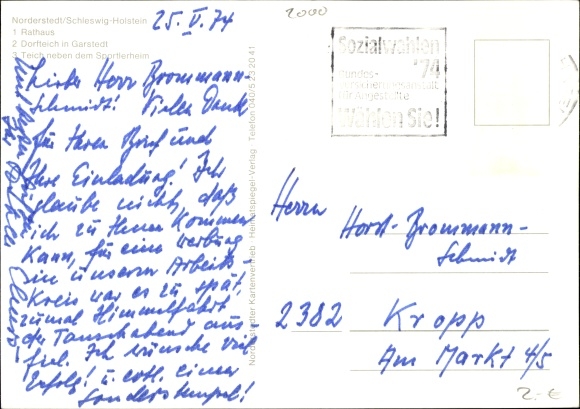 Norderstedt/Schleswig-Holstein
1 Rathaus
2 Dorfteich in Garstedt
3 Teich neben dem Sportlerheim
25. V. 74
2000
Lieber Herr Brommann-
Schmidt! Vielen Dank
für Ihren Brief und
Ihre Einladung! Ich
glaube nicht, daß
ich zu Ihnen kommen
kann, für eine Werbung
in unserem Arbeits-
Kreis war es zu spät,
zumal Himmelfahrt
der Tauschabend aus-
fiel. Ich wünsche viel
Erfolg! u. evtl. einen
Sonderstempel!
Telefon 0 40/5 23 20 41
Sozialwahlen
'74
Bundes-
versicherungsanstalt
für Angestellte
Wählen Sie!
Herrn
Horst-Brommann-
Schmidt
2382 Kropp
Am Markt 4/5
2.-€